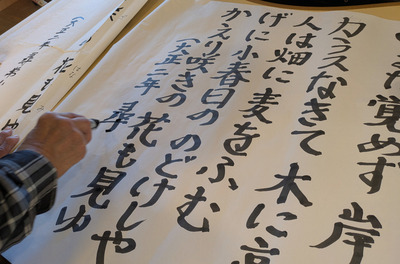 だ覚めず 岸
カラスなきて 木に
人は畑に 麦をふむ
げに小春日の のどけしや
かえり咲きの 花も見ゆ
(大正二年 尋
花も見ゆ